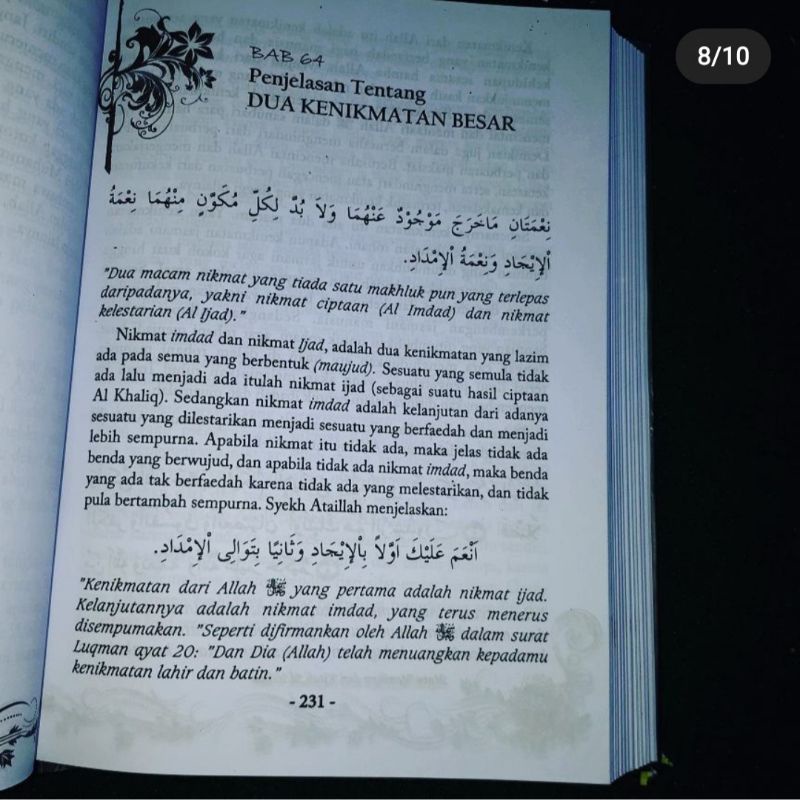 8/10
BAB 64
Penjelasan Tentang
DUA KENIKMATAN BESAR
نِعْمَتَانِ مَاخَرَجَ مَوْجُوْدٌ عَنْهُمَا وَلاَ بُدَّ لِكُلِّ مُكَوَّنٍ مِنْهُمَا نِعْمَةُ
اْلإِيْجَادِ وَنِعْمَةُ اْلإِمْدَادِ.
"Dua macam nikmat yang tiada satu makhluk pun yang terlepas
daripadanya, yakni nikmat ciptaan (Al Imdad) dan nikmat
kelestarian (Al Ijad)."
Nikmat imdad dan nikmat Ijad, adalah dua kenikmatan yang lazim
ada pada semua yang berbentuk (maujud). Sesuatu yang semula tidak
ada lalu menjadi ada itulah nikmat ijad (sebagai suatu hasil ciptaan
Al Khaliq). Sedangkan nikmat imdad adalah kelanjutan dari adanya
sesuatu yang dilestarikan menjadi sesuatu yang berfaedah dan menjadi
lebih sempurna. Apabila nikmat itu tidak ada, maka jelas tidak ada
benda yang berwujud, dan apabila tidak ada nikmat imdad, maka benda
yang ada tak berfaedah karena tidak ada yang melestarikan, dan tidak
pula bertambah sempurna. Syekh Ataillah menjelaskan:
اَنْعَمَ عَلَيْكَ اَوَّلاً بِاْلإِيْجَادِ وَثَانِيًا بِتَوَالِى اْلإِمْدَادِ.
"Kenikmatan dari Allah yang pertama adalah nikmat ijad.
Kelanjutannya adalah nikmat imdad, yang terus menerus
disempurnakan. "Seperti difirmankan oleh Allah dalam surat
Luqman ayat 20: "Dan Dia (Allah) telah menuangkan kepadamu
kenikmatan lahir dan batin."
- 231 -